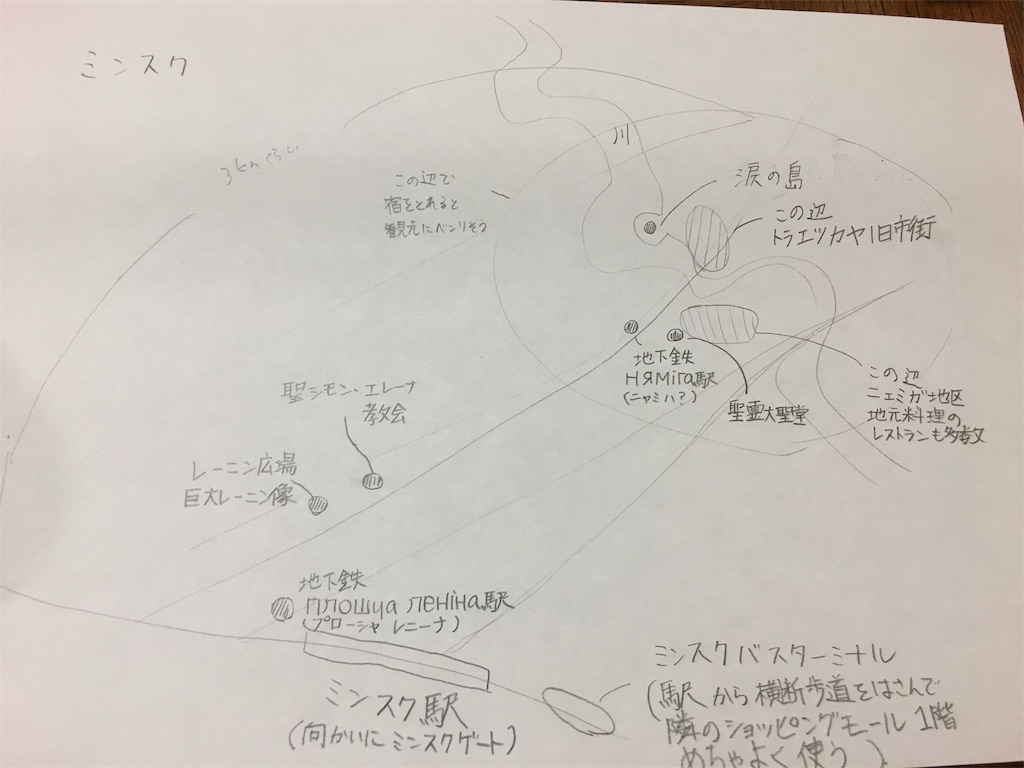 ミンスク
3kmぐらい
川
この辺で
宿をとれると
観光にベンリそう
涙の島
この辺
トラエツカヤ旧市街
地下鉄
Няміга駅
(ニャミハ?)
聖霊大聖堂
この辺
ニェミガ地区
地元料理の
レストランも多数
聖シモン・エレーナ
教会
レーニン広場
巨大レーニン像
地下鉄
площа леніна駅
(プローシャ レニーナ)
ミンスク駅
(向かいにミンスクゲート)
ミンスクバスターミナル
(駅から横断歩道をはさんで
隣のショッピングモール1階
めちゃよく使う)